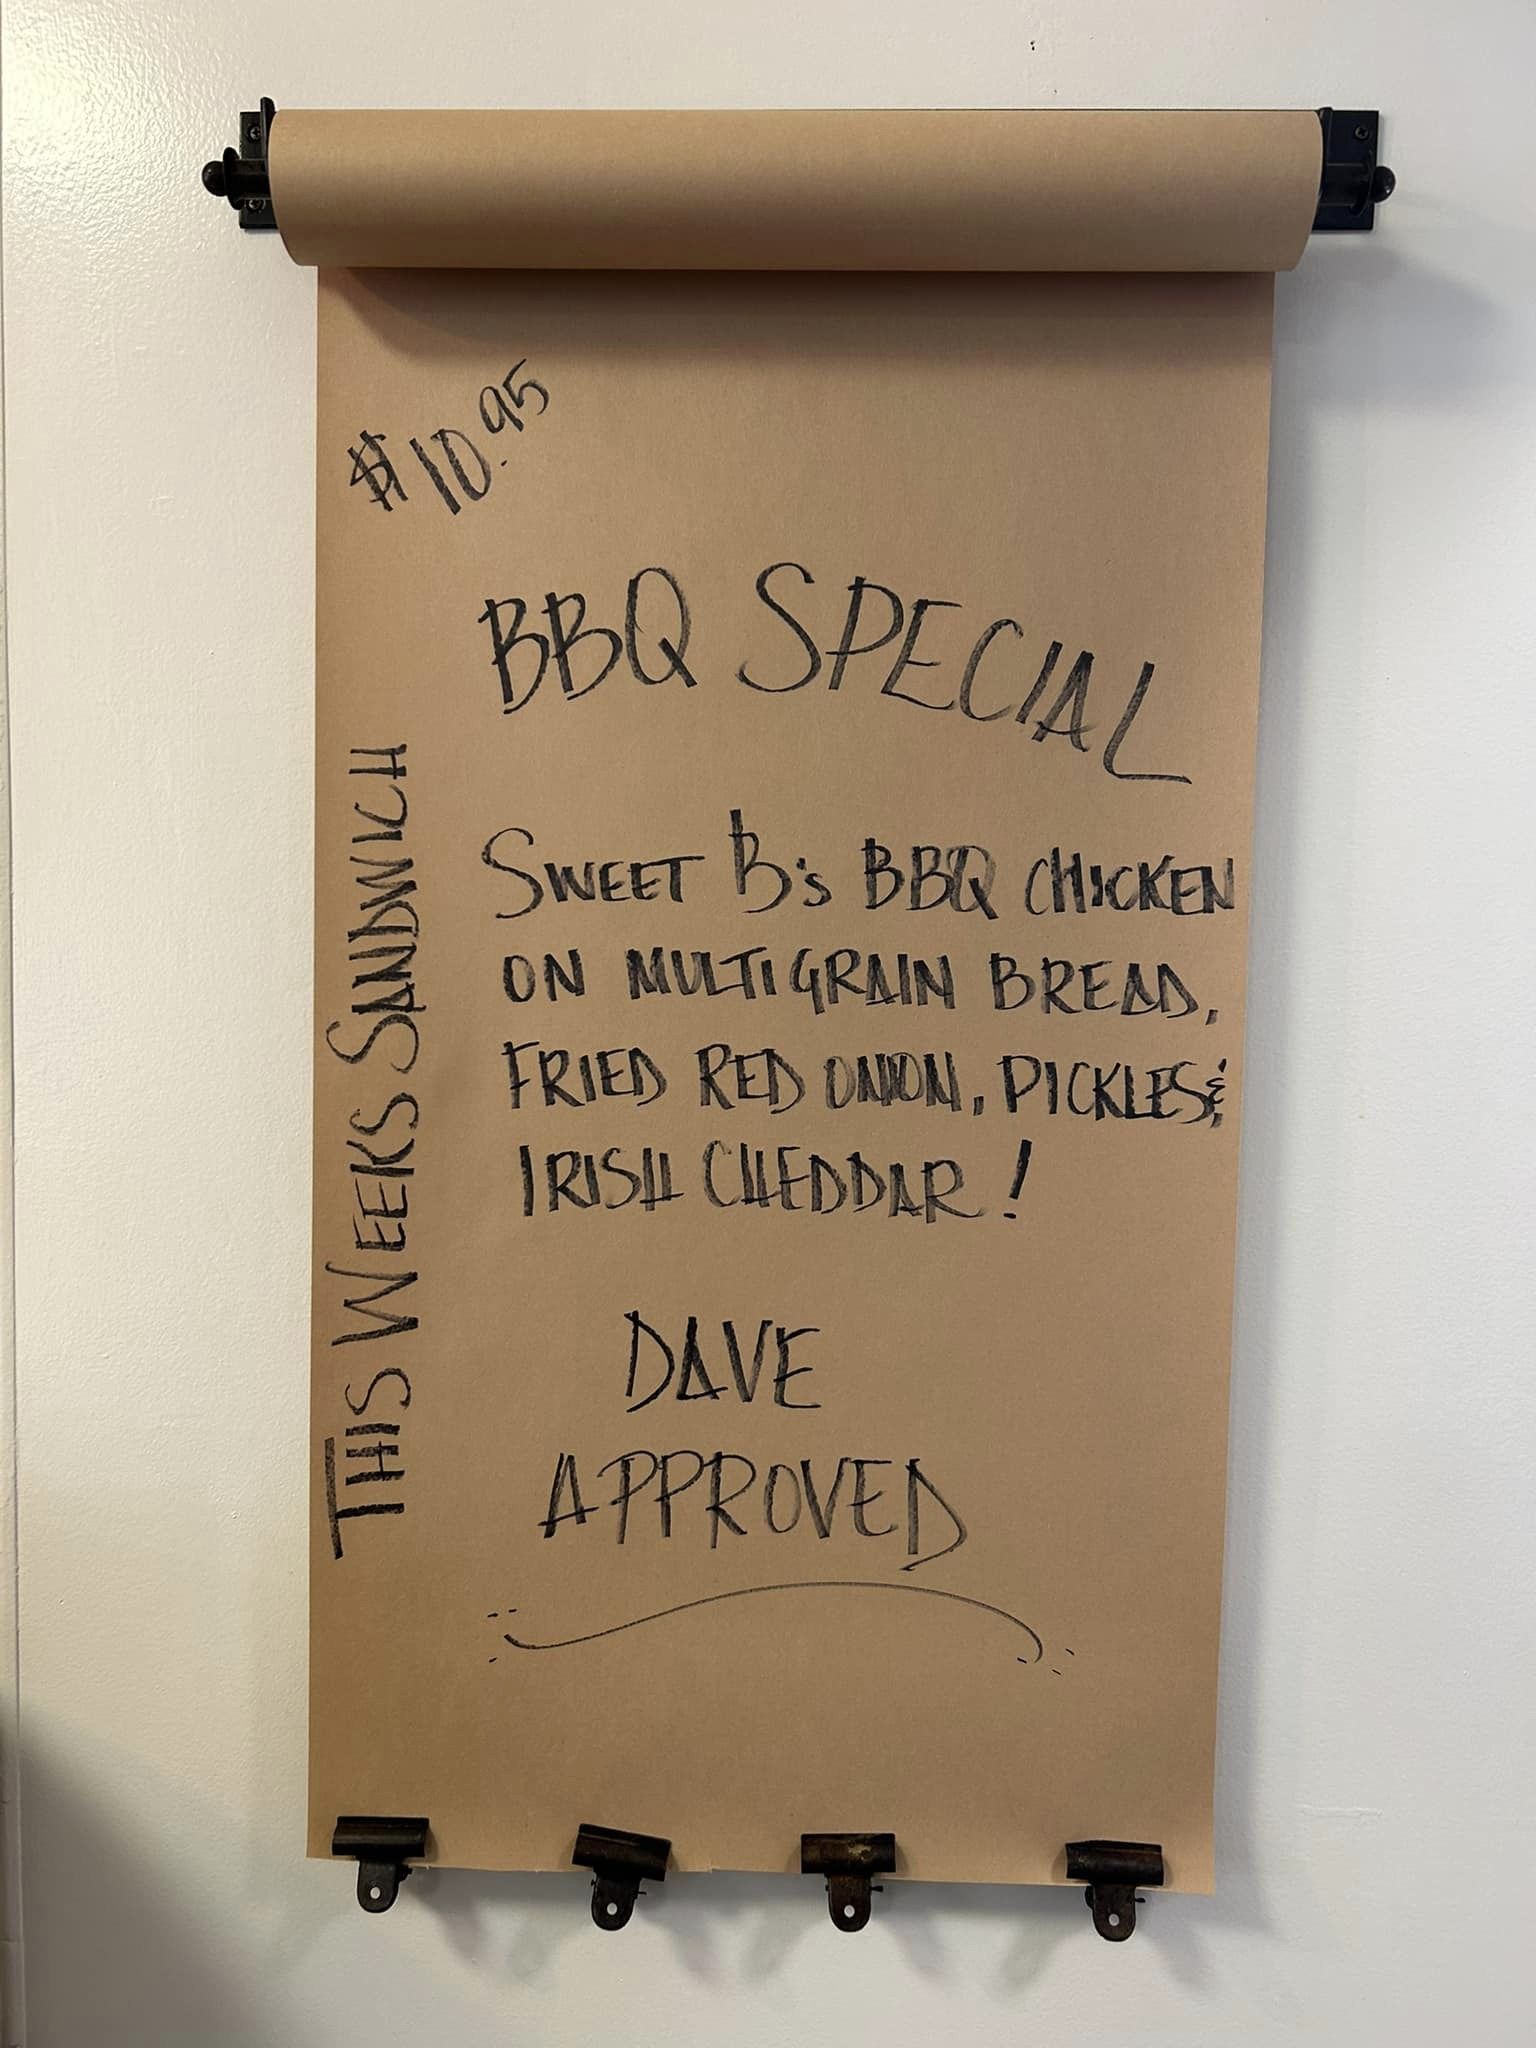 $10.95
BBQ SPECIAL
THIS WEEKS SANDWICH
SWEET B's BBQ CHICKEN
ON MULTIGRAIN BREAD,
FRIED RED ONION, PICKLES &
IRISH CHEDDAR!
DAVE
APPROVED